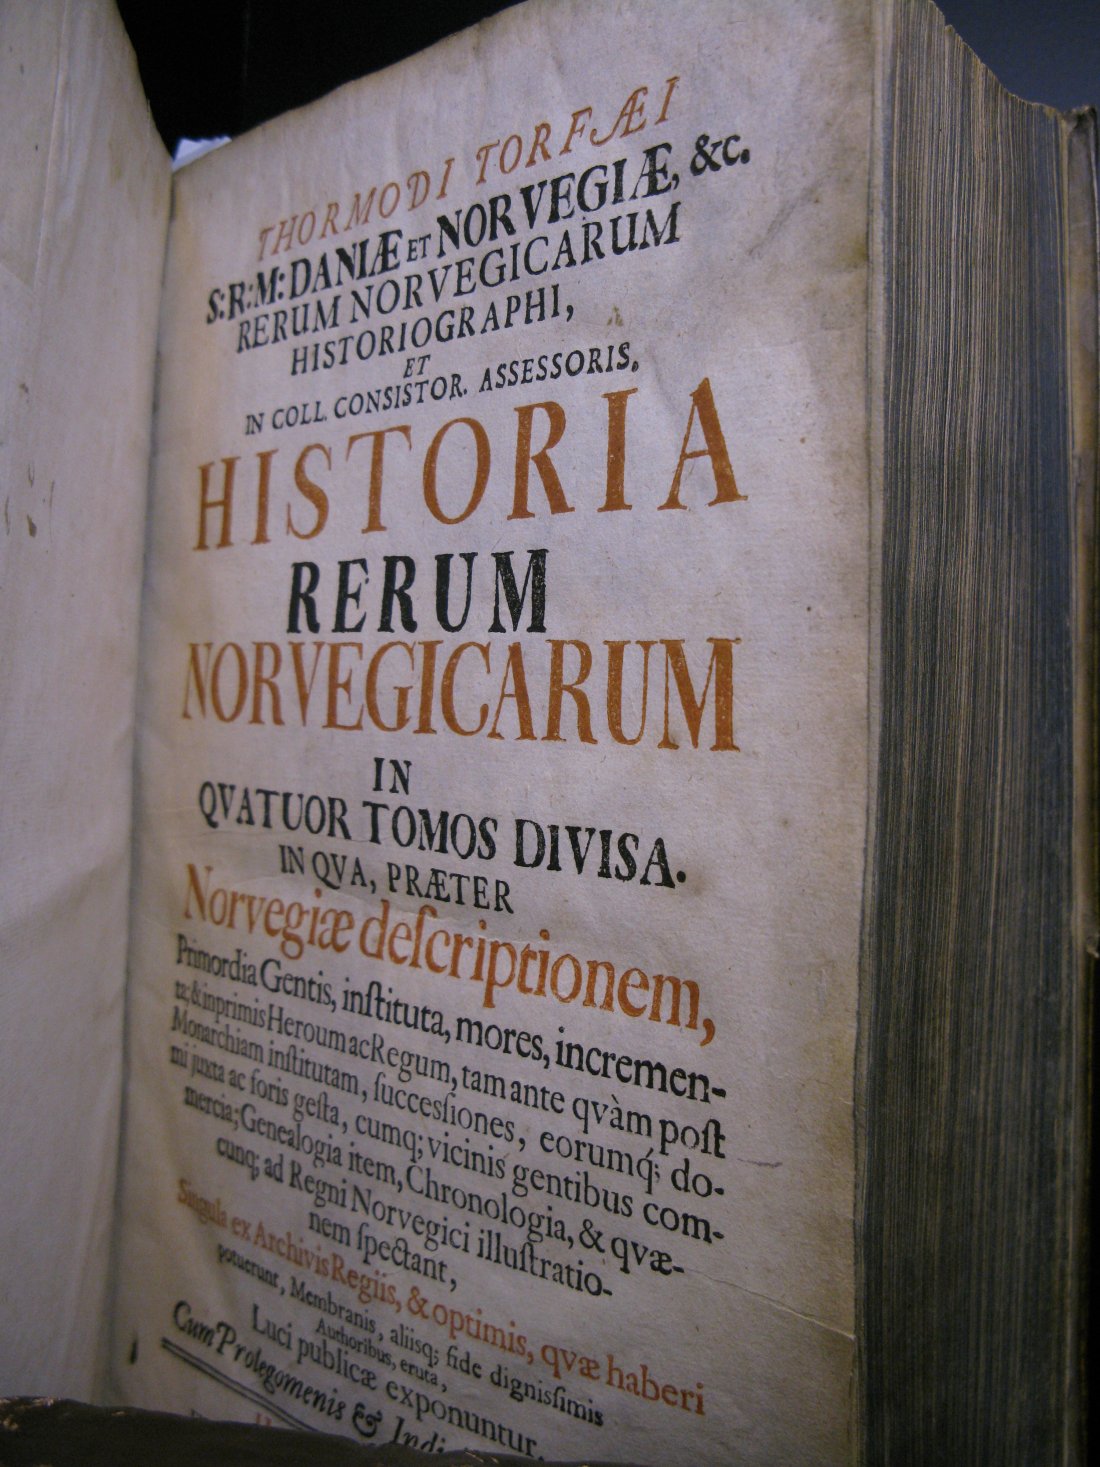 THORMODI TORFÆI
S:R:M: DANIÆ ET NORVEGIÆ, &c.
RERUM NORVEGICARUM
HISTORIOGRAPHI,
ET
IN COLL. CONSISTOR. ASSESSORIS.
HISTORIA
RERUM
NORVEGICARUM
IN
QVATUOR TOMOS DIVISA.
IN QVA, PRÆTER
Norvegiæ deſcriptionem,
Primordia Gentis, inſtituta, mores, incremen-
ta; & inprimis Heroum ac Regum, tam ante qvàm poſt
Monarchiam inſtitutam, ſuccesſiones, eorumq́; do-
mi juxta ac foris geſta, cumq; vicinis gentibus com-
mercia; Genealogia item, Chronologia, & qvæ-
cunq; ad Regni Norvegici illuſtratio-
nem ſpectant,
Singula ex Archivis Regiis, & optimis, qvæ haberi
potuerunt, Membranis, aliisq; fide dignisſimis
Authoribus, eruta,
Luci publicæ exponuntur.
Cum Prolegomenis & Indi